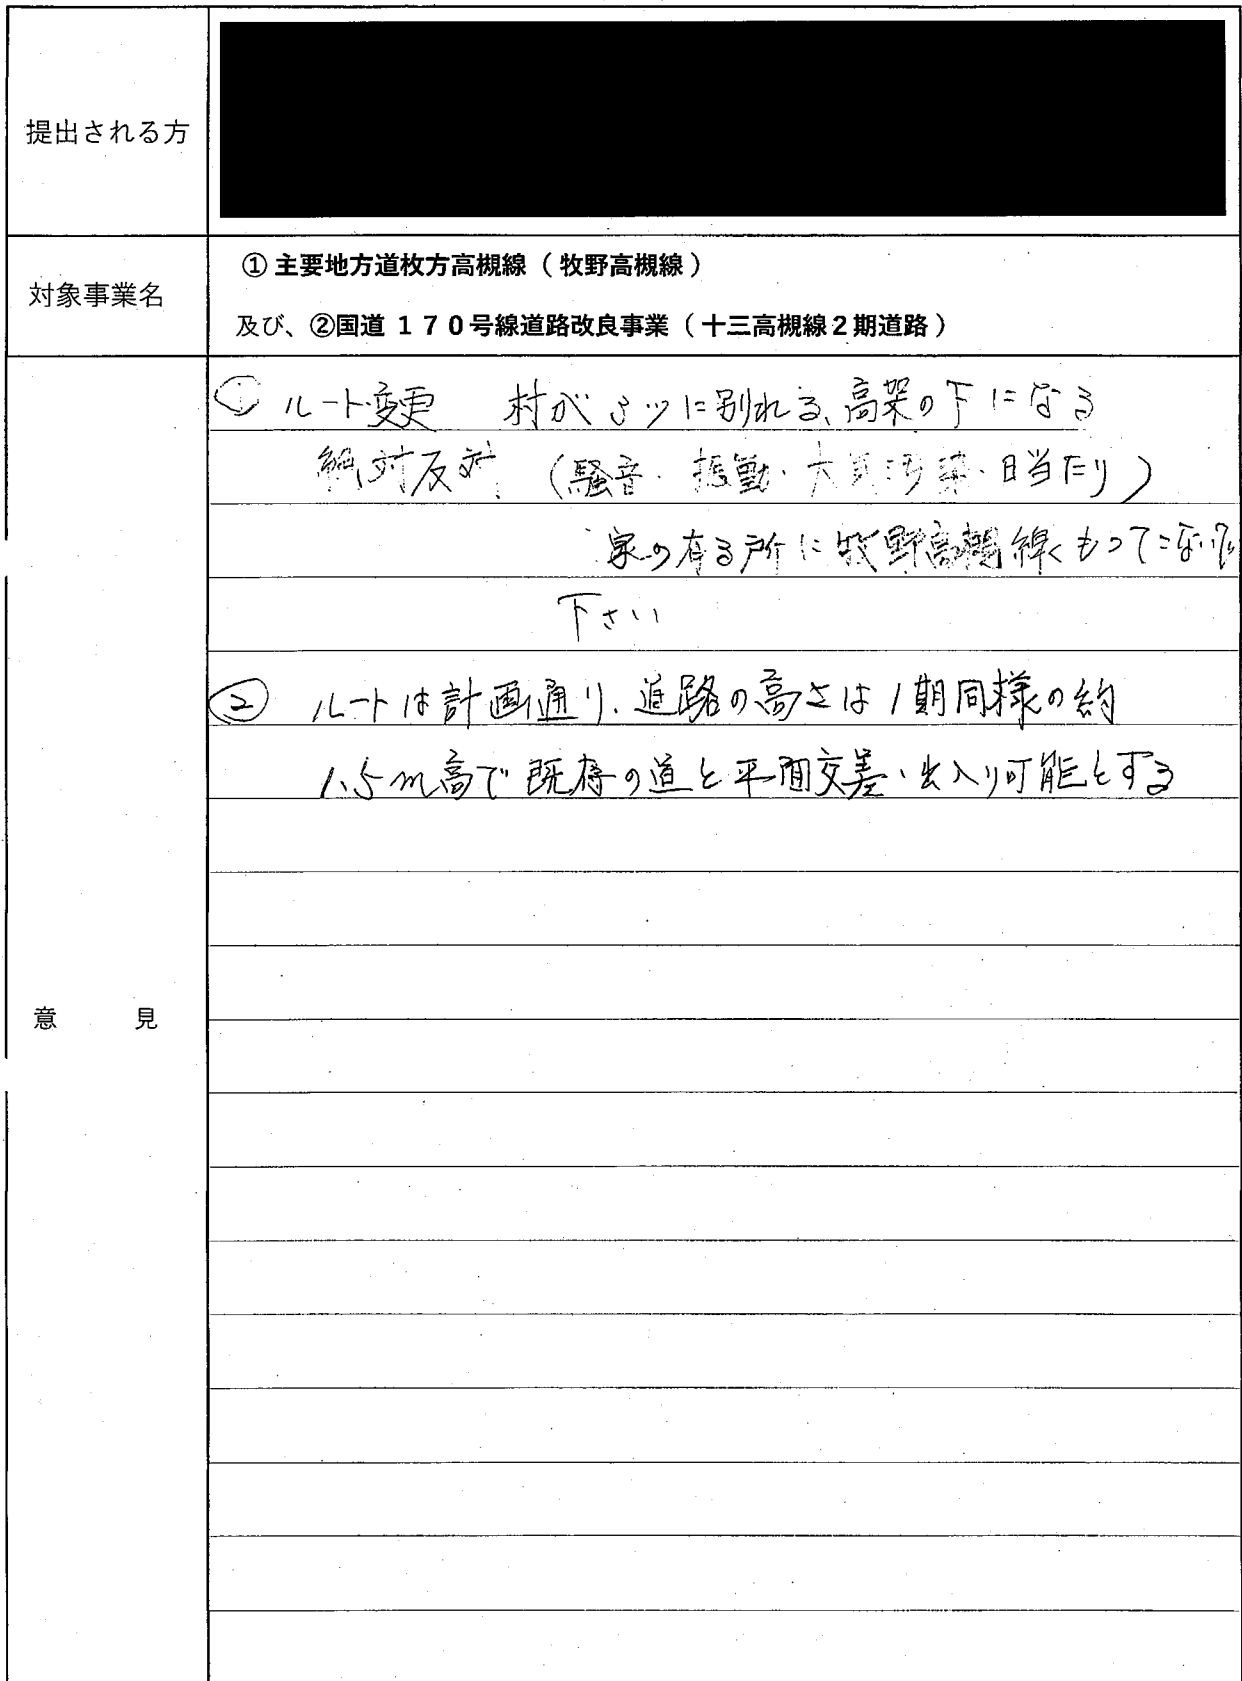 提出される方
対象事業名
① 主要地方道枚方高槻線（牧野高槻線）
及び、②国道１７０号線道路改良事業（十三高槻線２期道路）
意 見
① ルート変更 村が3ツに別れる、高架の下になる
絶対反対 （騒音・振動・大気汚染・日当たり）
家の有る所に牧野高槻線もってこないで
下さい
② ルートは計画通り、道路の高さは1期同様の約
1.5m高で既存の道と平面交差・出入り可能とする